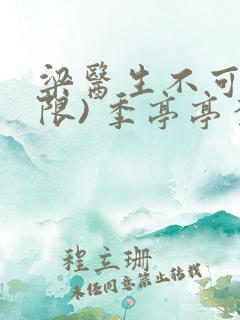 梁醫生不可
限) 季亭亭
程立珊
未经同意禁止转载